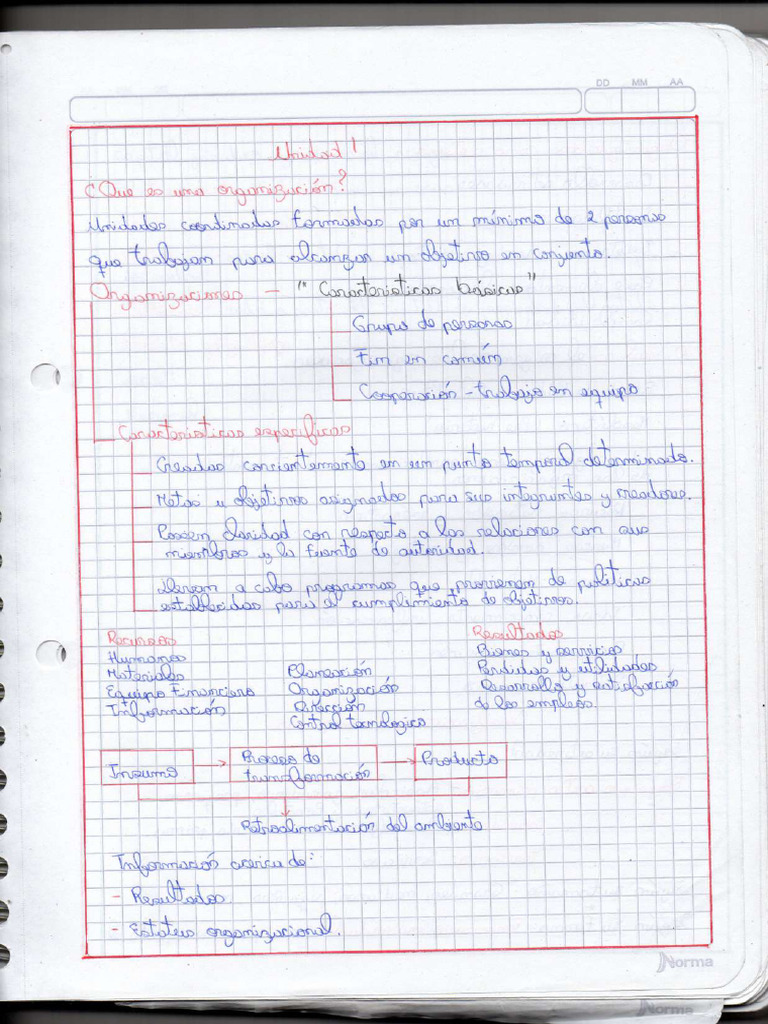 DD MM AA
Unidad 1
¿Que es una organización?
Unidades coordinadas formadas por un mínimo de 2 personas
que trabajan para alcanzar un objetivo en conjunto.
Organizaciones - "Caracteristicas básicas"
Grupo de personas
Fin en común
Cooperación - trabajo en equipo
Caracteristicas especificas
Creadas concientemente en un punto temporal determinado.
Metas y objetivos asignados para sus integrantes y creadores.
Poseen claridad con respecto a las relaciones con sus
miembros y la fuente de autoridad.
Llevan a cabo programas que provienen de politicas
establecidas para el cumplimiento de objetivos.
Recursos Resultados
Humanos Bienes y servicios
Materiales Planeación Perdidas y utilidades
Equipo Financiero Organización Desarrollo y satisfacción
Información Dirección de los empleos.
Control tecnologico
Insumo Proceso de Producto
transformación
Retroalimentación del ambiente
Información acerca de:
- Resultados
- Estatus organizacional.
Norma
Norma